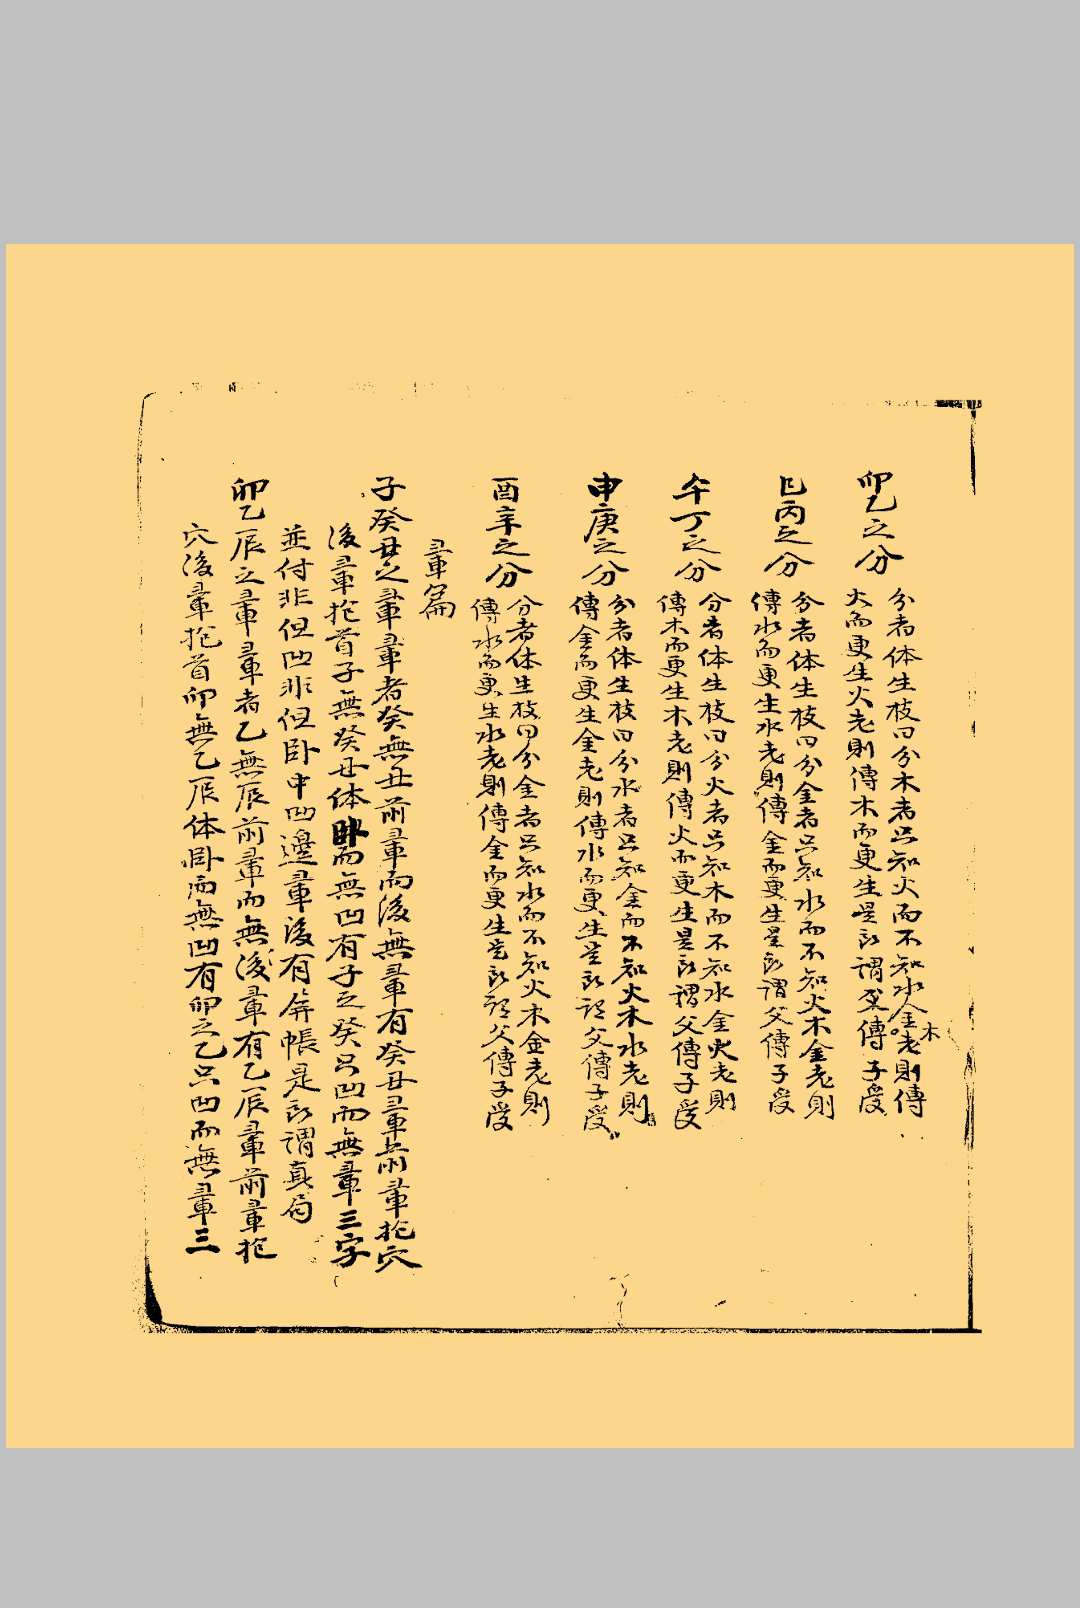 卯乙之分
分者体生枝曰分木者只知火而不知水金木老則傳
火而更生火老則傳木而更生是所謂父傳子受
巳丙之分
分者体生枝曰分金者只知水而不知火木金老則
傳水而更生水老則傳金而更生是所謂父傳子受
午丁之分
分者体生枝曰分火者只知木而不知水金火老則
傳木而更生木老則傳火而更生是所謂父傳子受
申庚之分
分者体生枝曰分水者只知金而不知火木水老則
傳金而更生金老則傳水而更生是所謂父傳子受
酉辛之分
分者体生枝曰分金者只知水而不知火木金老則
傳水而更生水老則傳金而更生是所謂父傳子受
暈篇
子癸丑之暈暈者癸無丑前暈而後無暈有癸丑暈前暈抱穴
後暈抱首子無癸丑体卧而無凹有子之癸只凹而無暈三字
並付非但凹非但卧中凹邊暈後有屏帳是所謂真局
卯乙辰之暈暈者乙無辰前暈而無後暈有乙辰暈前暈抱
穴後暈抱首卯無乙辰体卧而無凹有卯之乙只凹而無暈三